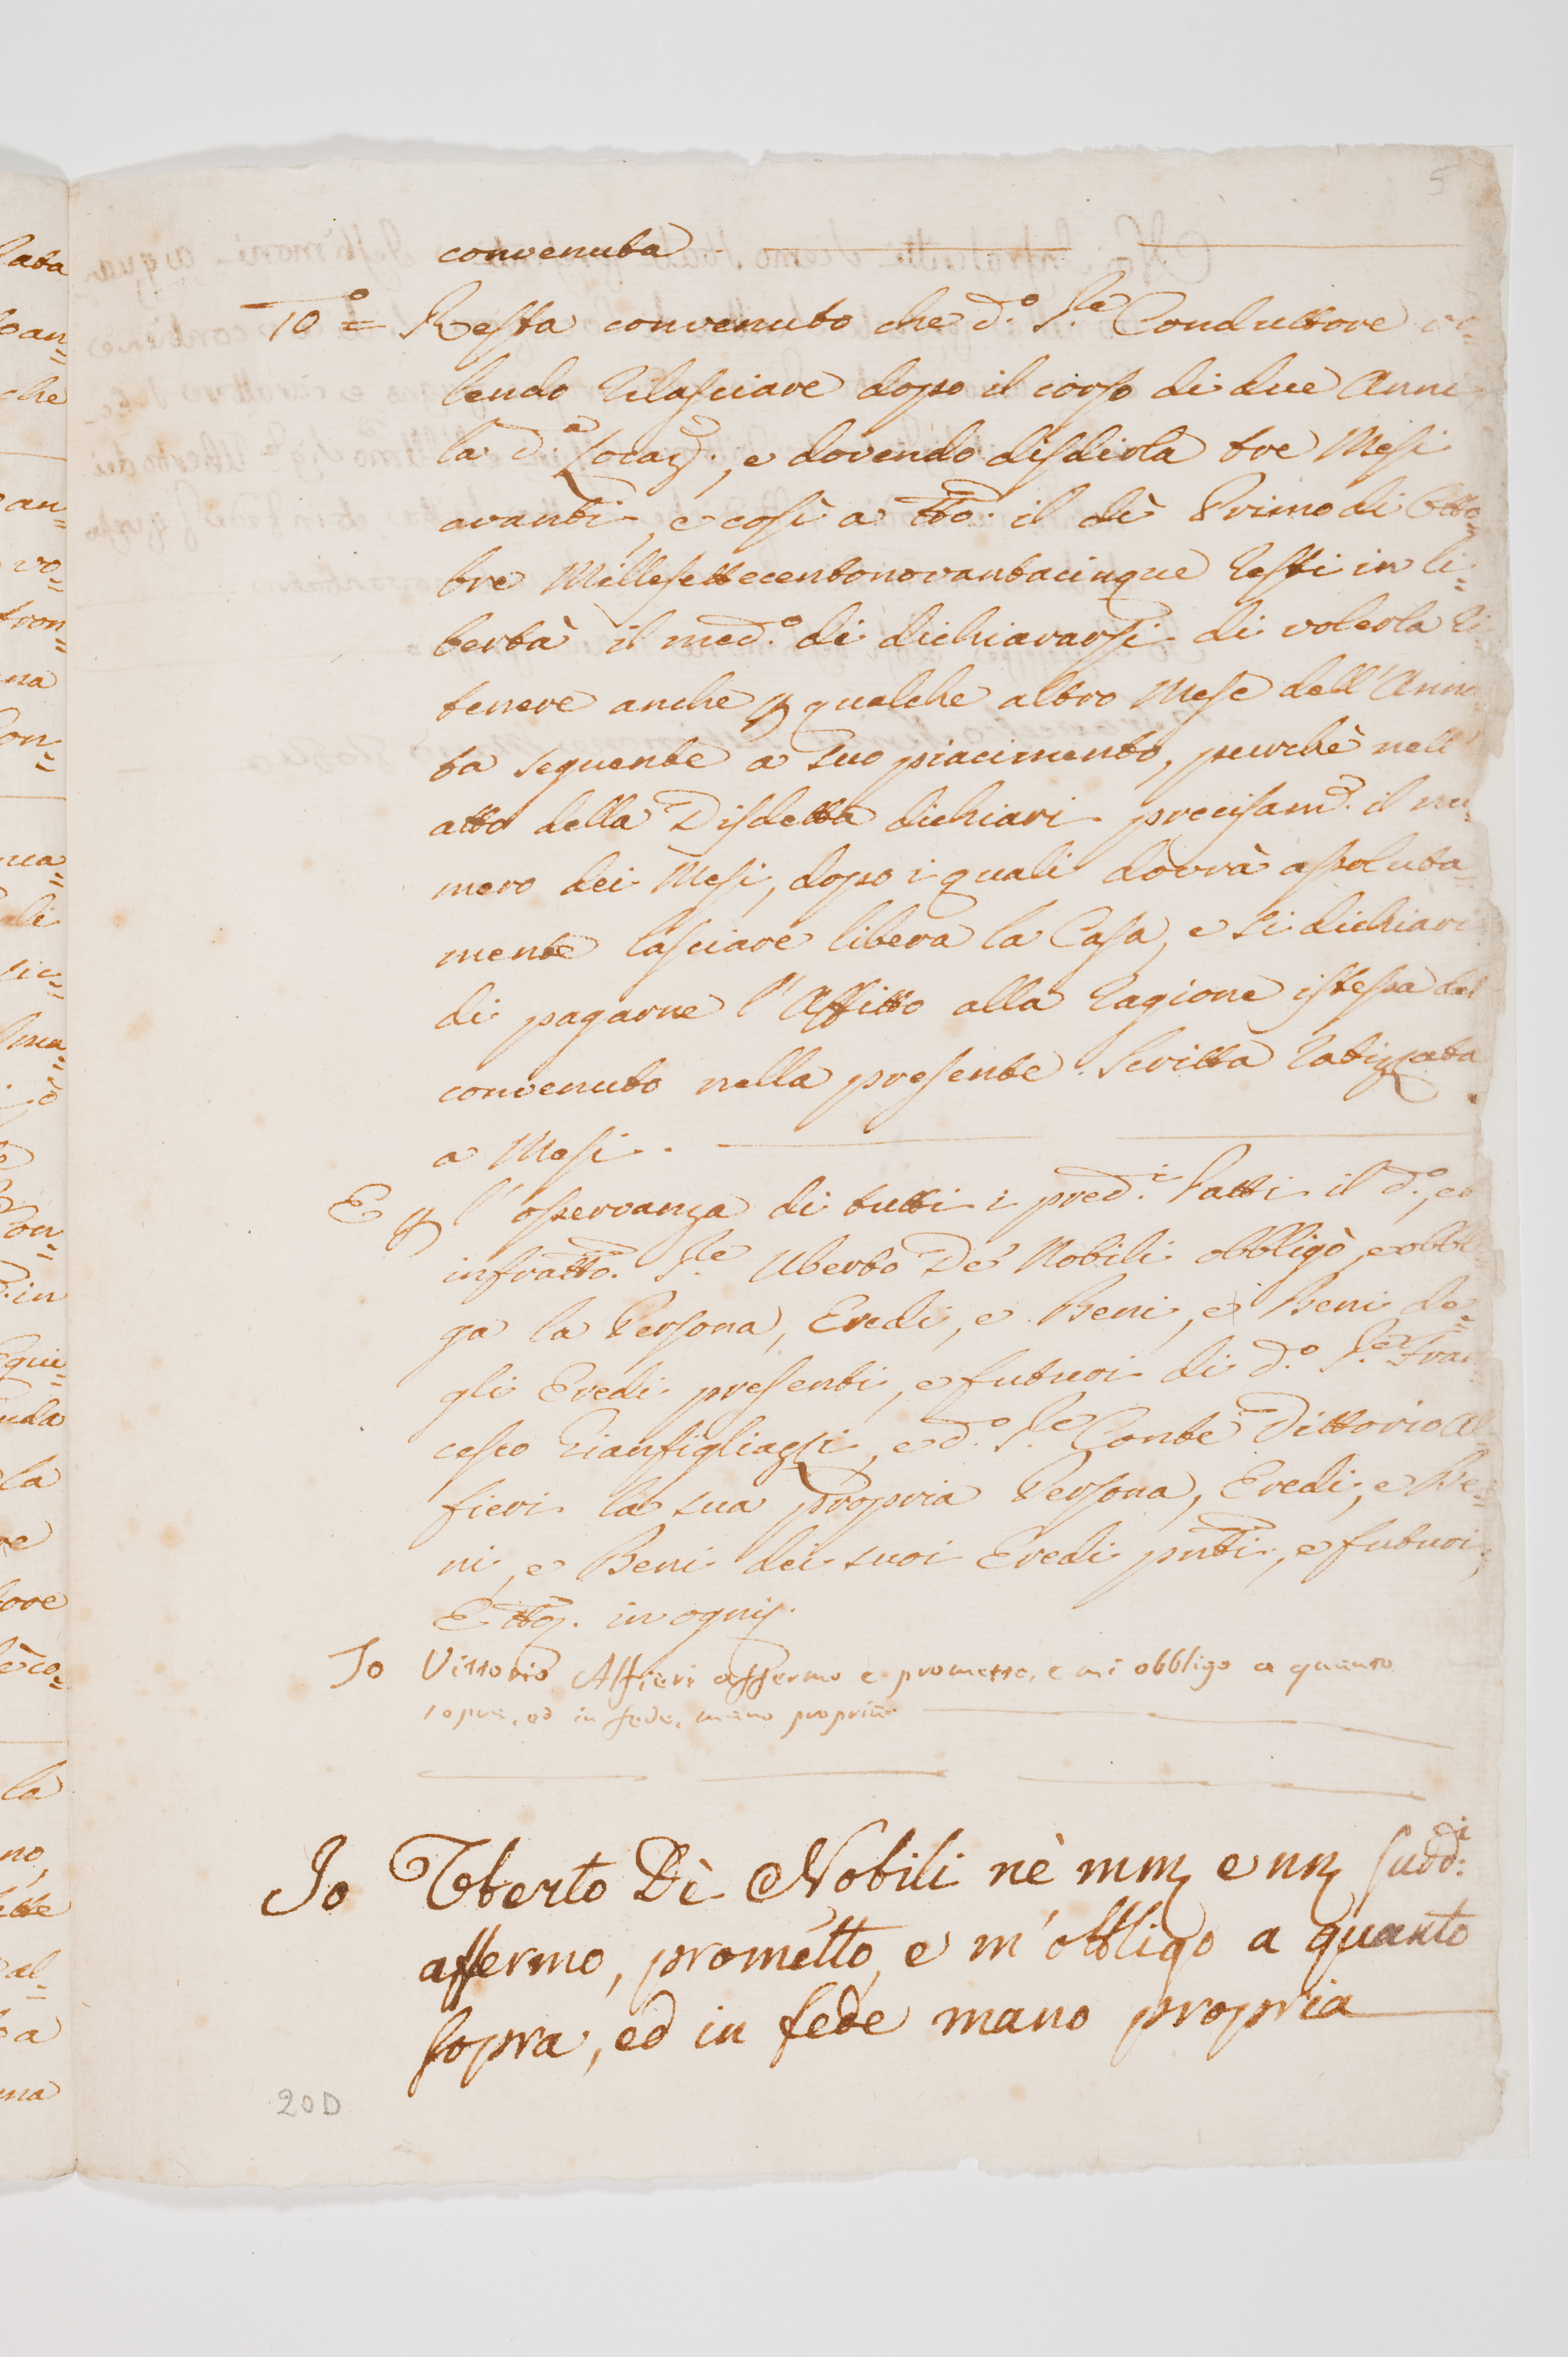 5
convenuta
10.º = Resta convenuto che d.º S.re Conduttore vo=
lendo rilasciare dopo il corso di due Anni
la d.a Locaz., e dovendo disdirla tre Mesi
avanti, e così a tto. il dì Primo di Otto=
bre Millesettecentonovantacinque resti in li=
bertà il med.º di dichiararsi di volerla ri
tenere anche p qualche altro Mese dell'Anna
ta seguente a suo piacimento, purchè nell'
atto della Disdetta dichiari precisam. il nu
mero dei Mesi, dopo i quali dovrà assoluta=
mente lasciare libera la Casa, e si dichiari
di pagarne l'Affitto alla ragione istessa del
convenuto nella presente Scritta ratizzata
a Mesi.
E p l'osservanza di tutti i pred.i Patti il d.º, ed
infratto. S.re Uberto De' Nobili obbligò, e obbli
ga la Persona, Eredi, e Beni, e Beni de=
gli Eredi presenti, e futuri di d.º S.re Fran
cesco Gianfigliazzi, e d.º S.re Conte Vittorio Al
fieri la sua propria Persona, Eredi, e Be=
ni, e Beni dei suoi Eredi pnti, e futuri,
in ogni
Io Vittorio Alfieri affermo e prometto, e mi obbligo a quanto
sopra, ed in fede, mano propria
Io Uberto Dè Nobili nè e sudd.i
affermo, prometto, e m'obbligo a quanto
sopra, ed in fede mano propria
20D